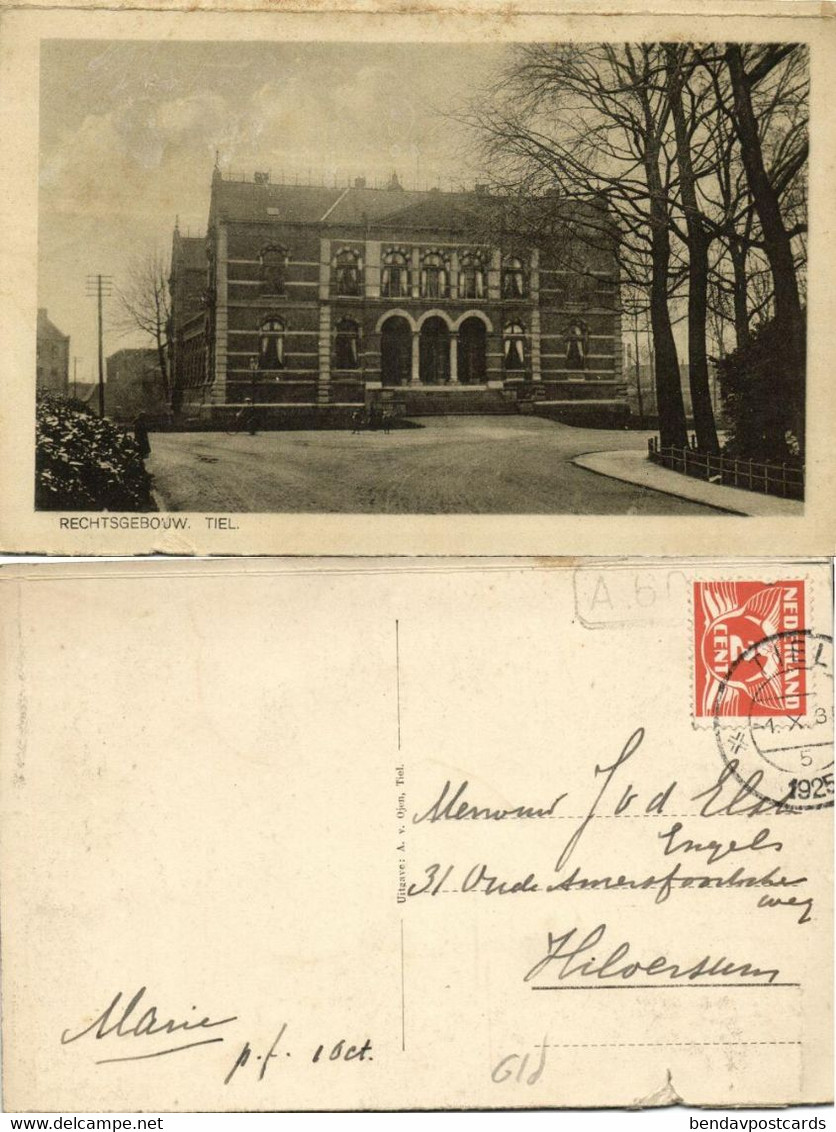 RECHTSGEBOUW. TIEL.
A.60
NEDERLAND
CENT
TIEL
5
1925
Uitgave: A. v. Ojen, Tiel.
Mevrouw J v d Elst
Engels
31 Oude Amersfoortsche
weg
Hilversum
Marie
p.f. 1 Oct.
bendavpostcards